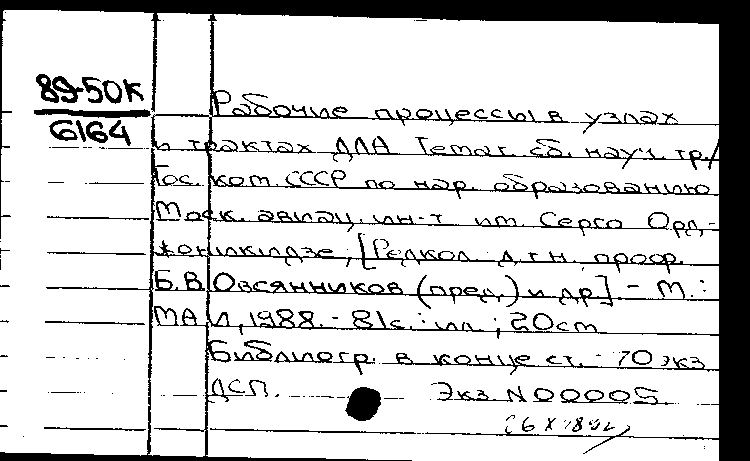 89-50К
6164
Рабочие процессы в узлах
и трактах ДЛА Темат. сб. науч. тр./
Гос. ком. СССР по нар. образованию
Моск. авиац. ин-т им. Серго Орд-
жоникидзе; [Редкол д.т.н. проф.
Б.В Овсянников (пред.) и др] - М.:
МАИ, 1988. - 81с.: ил.; 20см
Библиогр. в конце ст. - 70 экз
ДСП. Экз N00005.